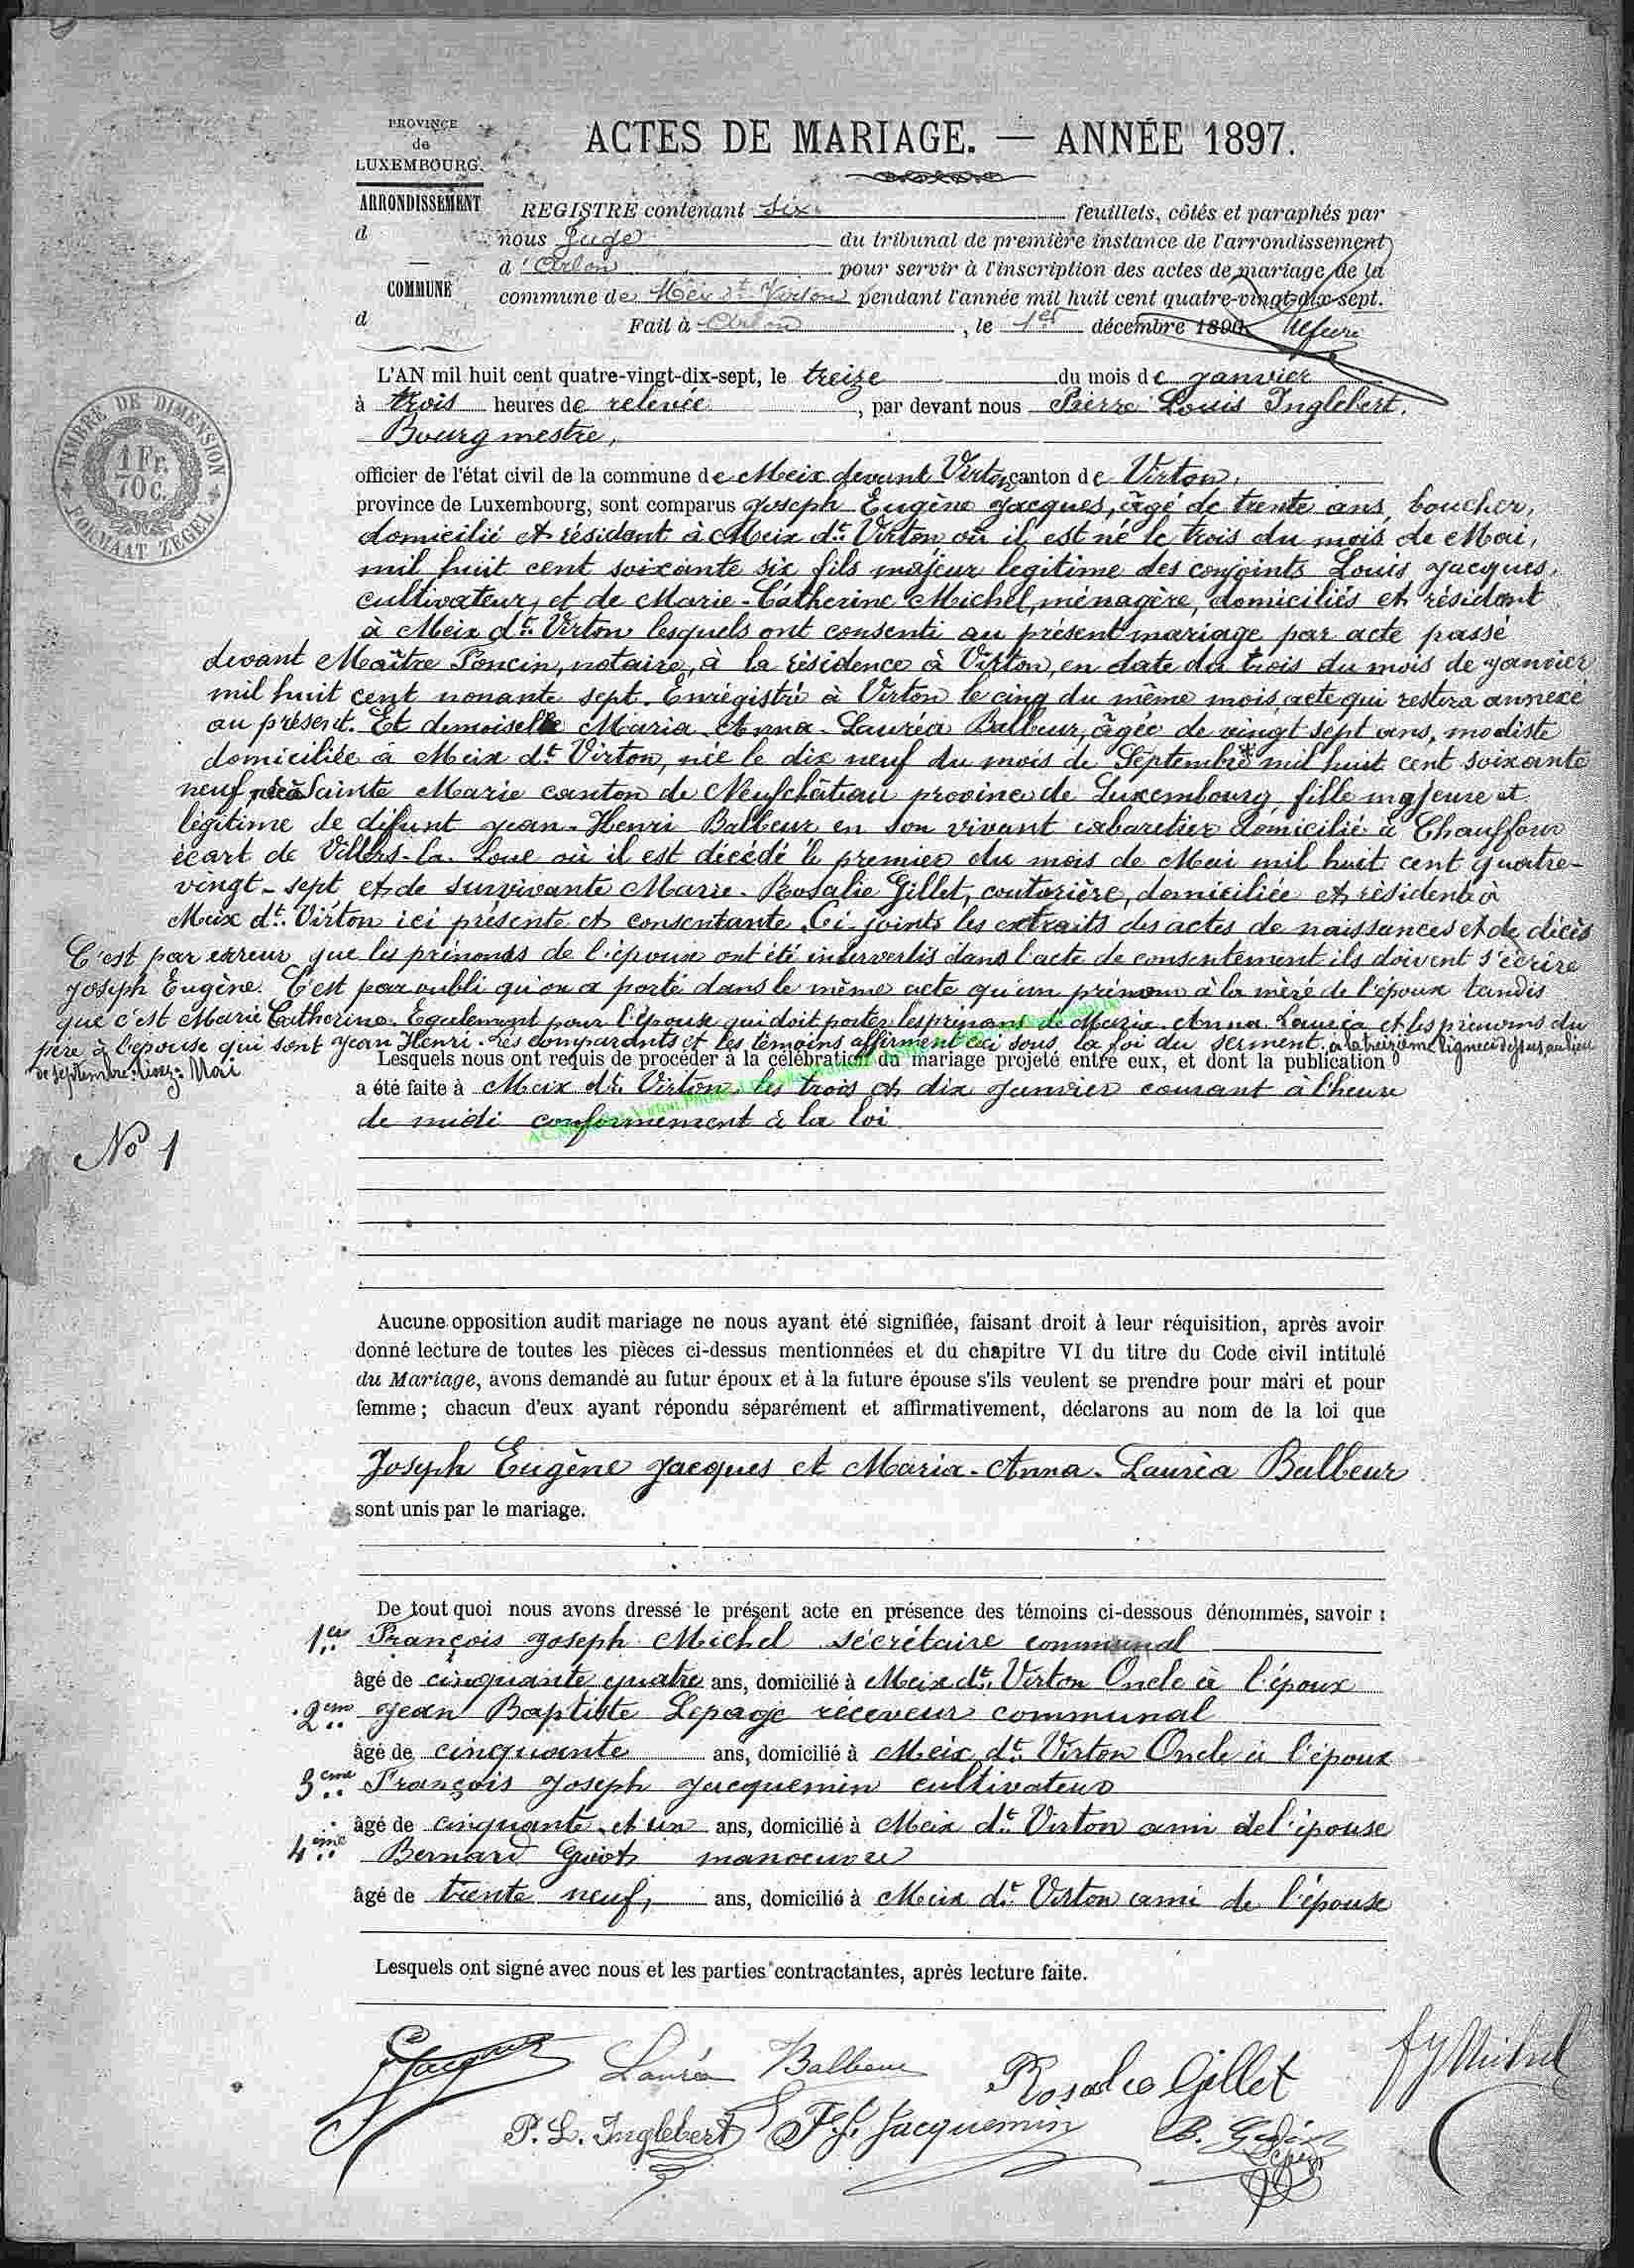 PROVINCE
de
LUXEMBOURG.
ARRONDISSEMENT
d
COMMUNE
d
ACTES DE MARIAGE. — ANNÉE 1897.
REGISTRE contenant six feuillets, côtés et paraphés par
nous Juge du tribunal de première instance de l'arrondissement
d'Arlon pour servir à l'inscription des actes de mariage de la
commune de Meix dt Virton pendant l'année mil huit cent quatre-vingt-dix-sept.
Fait à Arlon, le 1er décembre 1896
TIMBRE DE DIMENSION
1 Fr.
70 C.
FORMAAT ZEGEL
L'AN mil huit cent quatre-vingt-dix-sept, le treize du mois de janvier
à trois heures de relevée, par devant nous Pierre Louis Inglebert,
Bourgmestre,
officier de l'état civil de la commune de Meix devant Virton canton de Virton,
province de Luxembourg, sont comparus Joseph Eugène Jacques, âgé de trente ans, boucher,
domicilié et résidant à Meix dt. Virton où il est né le trois du mois de Mai,
mil huit cent soixante six fils majeur legitime des conjoints Louis Jacques,
cultivateur, et de Marie-Catherine Michel, ménagère, domiciliés et résidant
à Meix dt. Virton lesquels ont consenti au présent mariage par acte passé
devant Maître Poncin, notaire, à la résidence à Virton, en date du trois du mois de janvier
mil huit cent nonante sept. Enrégistré à Virton le cinq du même mois acte qui restera annexé
au présent. Et demoiselle Maria-Anna-Lauréa Balbeur, âgée de vingt sept ans, modiste
domiciliée à Meix dt Virton, née le dix neuf du mois de Septembre mil huit cent soixante
neuf, à Sainte Marie canton de Neufchâteau province de Luxembourg, fille majeure et
légitime de défunt Jean-Henri Balbeur en son vivant cabaretier domicilié à Chauffour
écart de Villers-la-Loue où il est décédé le premier du mois de Mai mil huit cent quatre-
vingt-sept et de survivante Marie-Rosalie Gillet, couturière, domiciliée et résidente à
Meix dt. Virton ici présente et consentante. Ci-joints les extraits des actes de naissances et de décès
C'est par erreur que les prénoms de l'époux ont été intervertis dans l'acte de consentement ils doivent s'écrire
Joseph Eugène. C'est par oubli qu'on a porté dans le même acte qu'un prénom à la mère de l'époux tandis
que c'est Marie Catherine. Egalement pour l'épouse qui doit porter les prénoms de Maria-Anna-Lauréa et les prénoms du
père à l'épouse qui sont Jean Henri. Les comparants et les témoins affirment ceci sous la foi du serment. à la treizième ligne ci-dessus au lieu
de septembre: lisez: Mai
Lesquels nous ont requis de procéder à la célébration du mariage projeté entre eux, et dont la publication
a été faite à Meix dt. Virton les trois et dix Janvier courant à l'heure
de midi conformement à la loi
No 1
Aucune opposition audit mariage ne nous ayant été signifiée, faisant droit à leur réquisition, après avoir
donné lecture de toutes les pièces ci-dessus mentionnées et du chapitre VI du titre du Code civil intitulé
du Mariage, avons demandé au futur époux et à la future épouse s'ils veulent se prendre pour mari et pour
femme; chacun d'eux ayant répondu séparément et affirmativement, déclarons au nom de la loi que
Joseph Eugène Jacques et Maria-Anna-Lauréa Balbeur
sont unis par le mariage.
De tout quoi nous avons dressé le présent acte en présence des témoins ci-dessous dénommés, savoir :
1er François Joseph Michel sécrétaire communal
âgé de cinquante quatre ans, domicilié à Meix dt. Virton Oncle à l'époux
2em Jean Baptiste Lepage réceveur communal
âgé de cinquante ans, domicilié à Meix dt. Virton Oncle à l'époux
3eme François Joseph Jacquemin cultivateur
âgé de cinquante et un ans, domicilié à Meix dt Virton ami de l'épouse
4eme Bernard Guiot manoeuvre
âgé de trente neuf, ans, domicilié à Meix dt Virton ami de l'épouse
Lesquels ont signé avec nous et les parties contractantes, après lecture faite.
Jacques Lauréa Balbeur Rosalie Gillet f j Michel
P. L. Inglebert F. J. Jacquemin B. Guiot